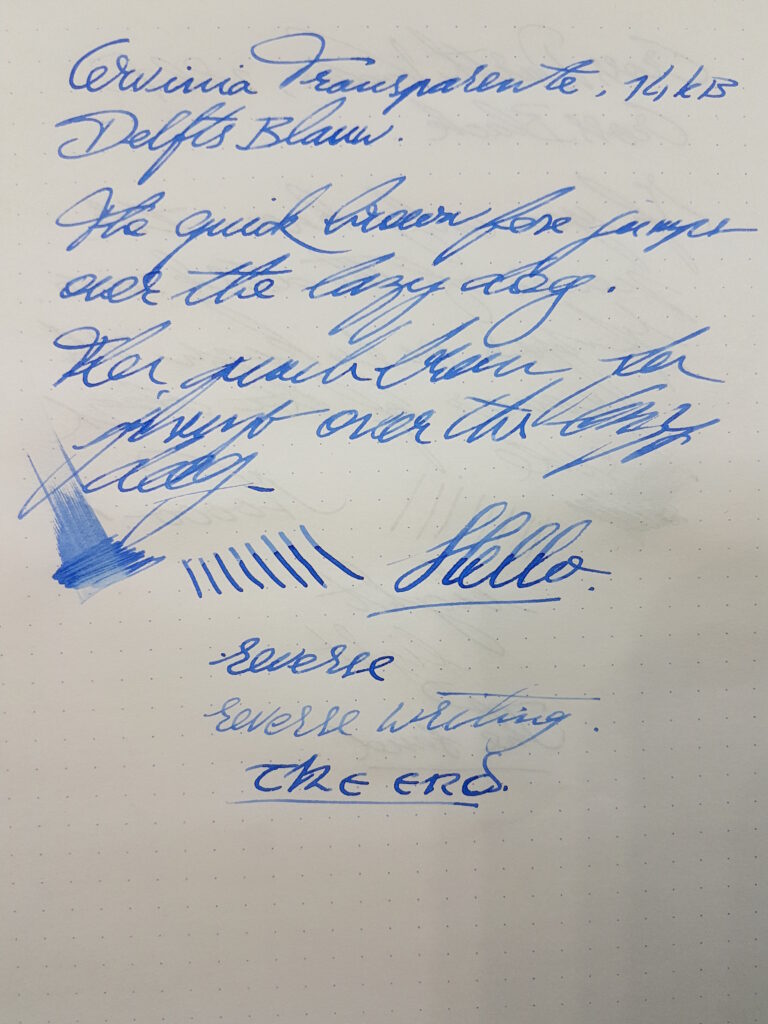 Cervinia Transparente, 14kB
Delfts Blauw.
The quick brown fox jumps
over the lazy dog.
The quick brown
over the lazy
dog
Hello.
reverse
reverse writing.
THE END.